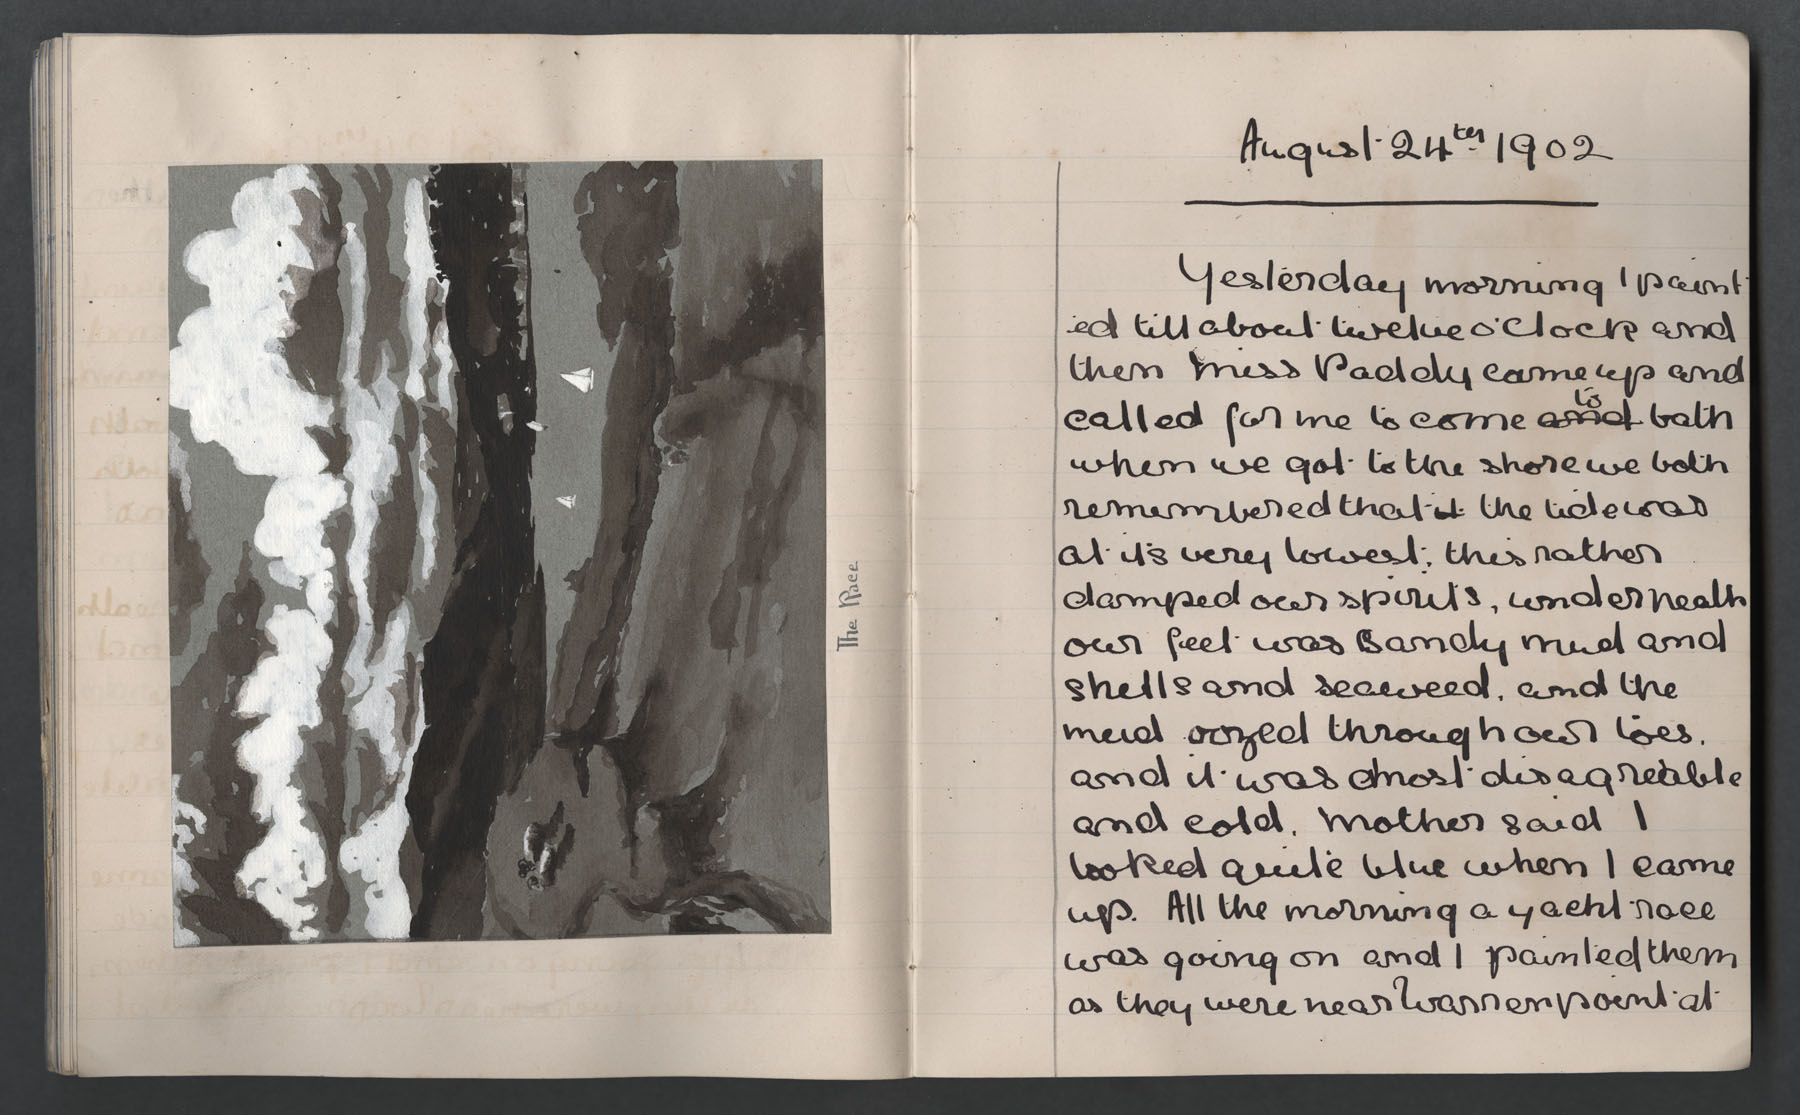 The Race
August 24th 1902
Yesterday morning I paint-
ed till about twelve o'Clock and
then Miss Paddy came up and
called for me to come and to bath
when we got to the shore we both
remembered that it the tide was
at it's very lowest; this rather
damped our spirits, underneath
our feet was Sandy mud and
shells and seaweed, and the
mud oozed through our toes.
and it was most disagreable
and cold. Mother said I
looked quite blue when I came
up. All the morning a yacht race
was going on and I painted them
as they were near Warrenpoint at